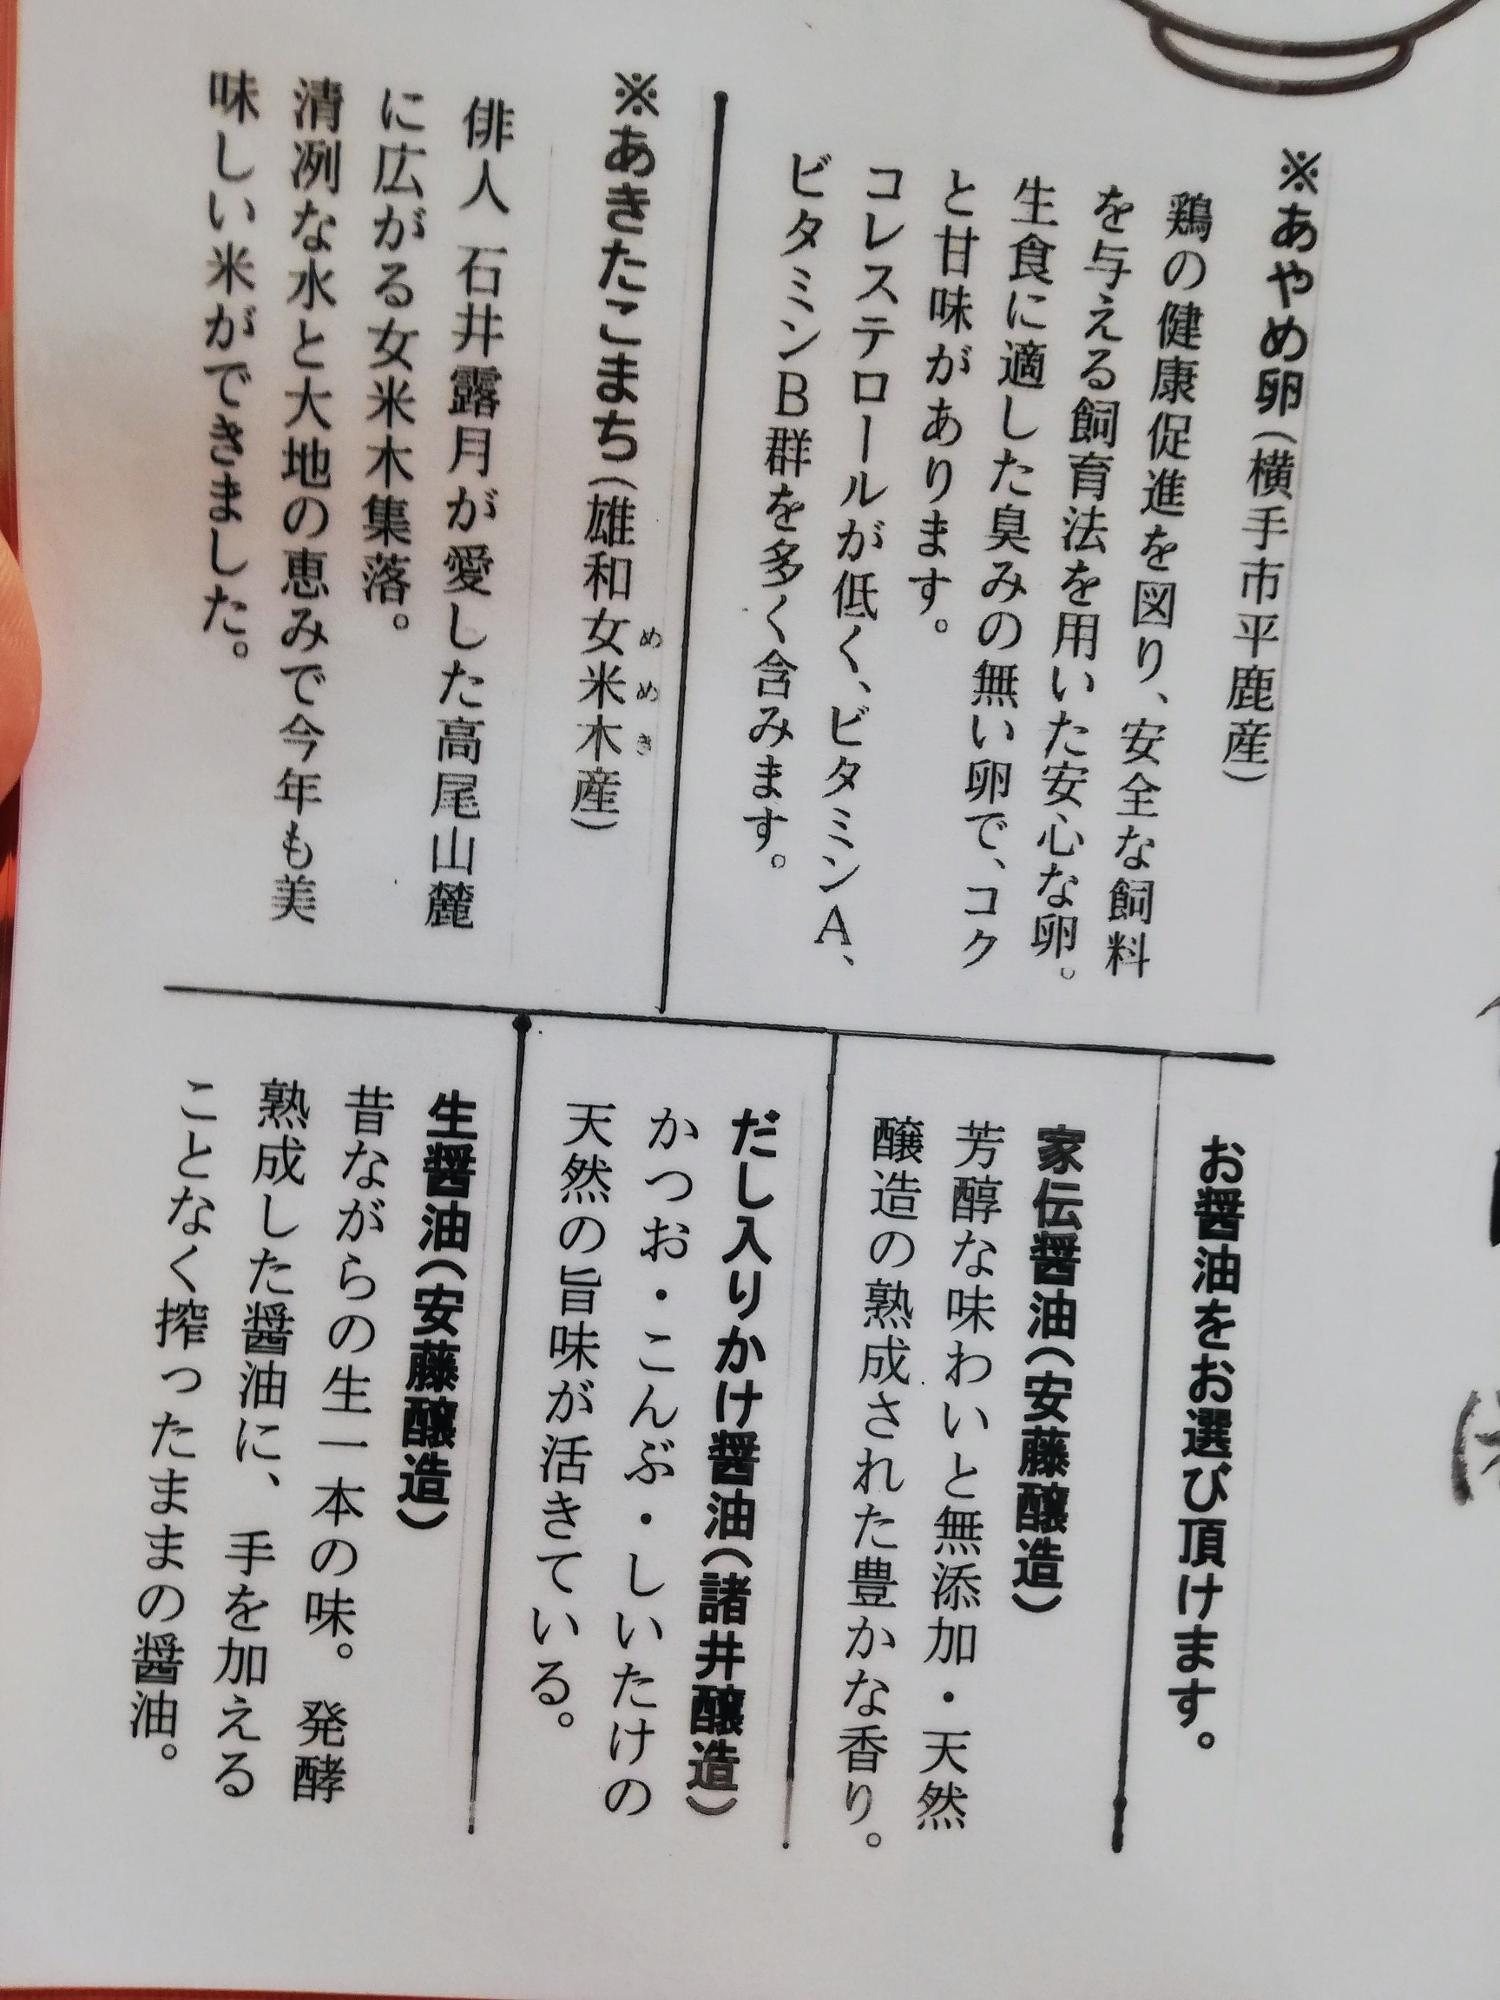 ※あやめ卵(横手市平鹿産)
鶏の健康促進を図り、安全な飼料
を与える飼育法を用いた安心な卵。
生食に適した臭みの無い卵で、コク
と甘味があります。
コレステロールが低く、ビタミンA、
ビタミンB群を多く含みます。
※あきたこまち(雄和女米木産)
めめき
俳人 石井露月が愛した高尾山麓
に広がる女米木集落。
清冽な水と大地の恵みで今年も美
味しい米ができました。
お醤油をお選び頂けます。
家伝醤油(安藤醸造)
芳醇な味わいと無添加・天然
醸造の熟成された豊かな香り。
だし入りかけ醤油(諸井醸造)
かつお・こんぶ・しいたけの
天然の旨味が活きている。
生醤油(安藤醸造)
昔ながらの生一本の味。発酵
熟成した醤油に、手を加える
ことなく搾ったままの醤油。